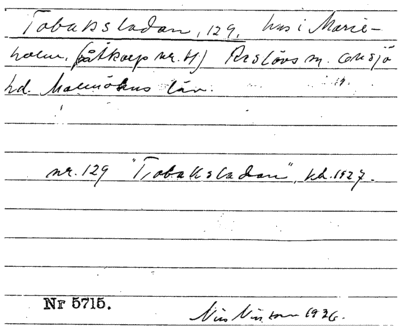 Tobaksladan, 129, hus i Marie-
holm, (Åtkarp nr. 4) Reslövs sn. Onsjö
hd. Malmöhus län.
nr. 129 "Tobaksladan", kb. 1927.
Nr 5715.
Nils Nilsson 1936.